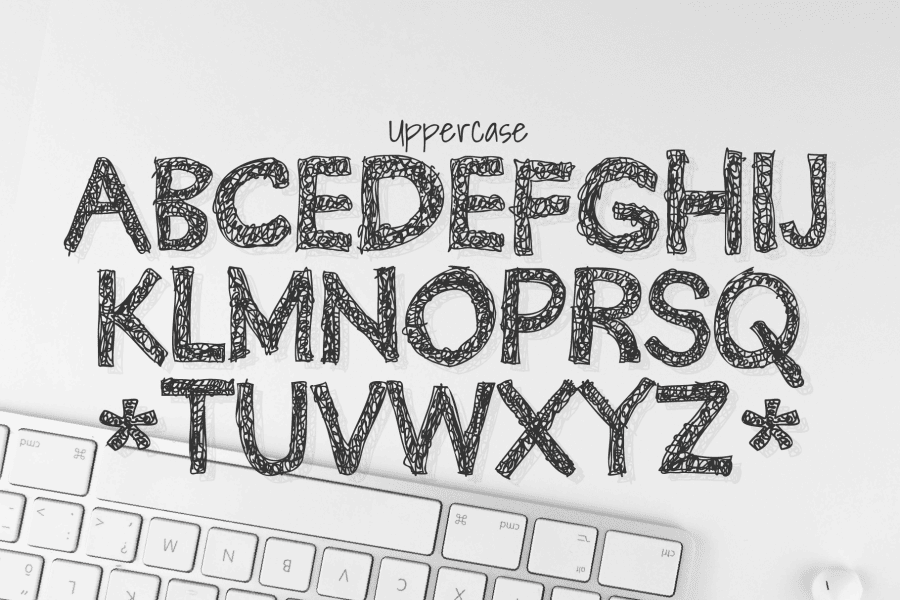 Uppercase
ABCDEDEFGHIJ
KLMNOPRSQ
*TUVWXYZ*
cmd ⌘
⌘ cmd
alt
ctrl
< ; ,
> : .
? /
M N B V C X
L K